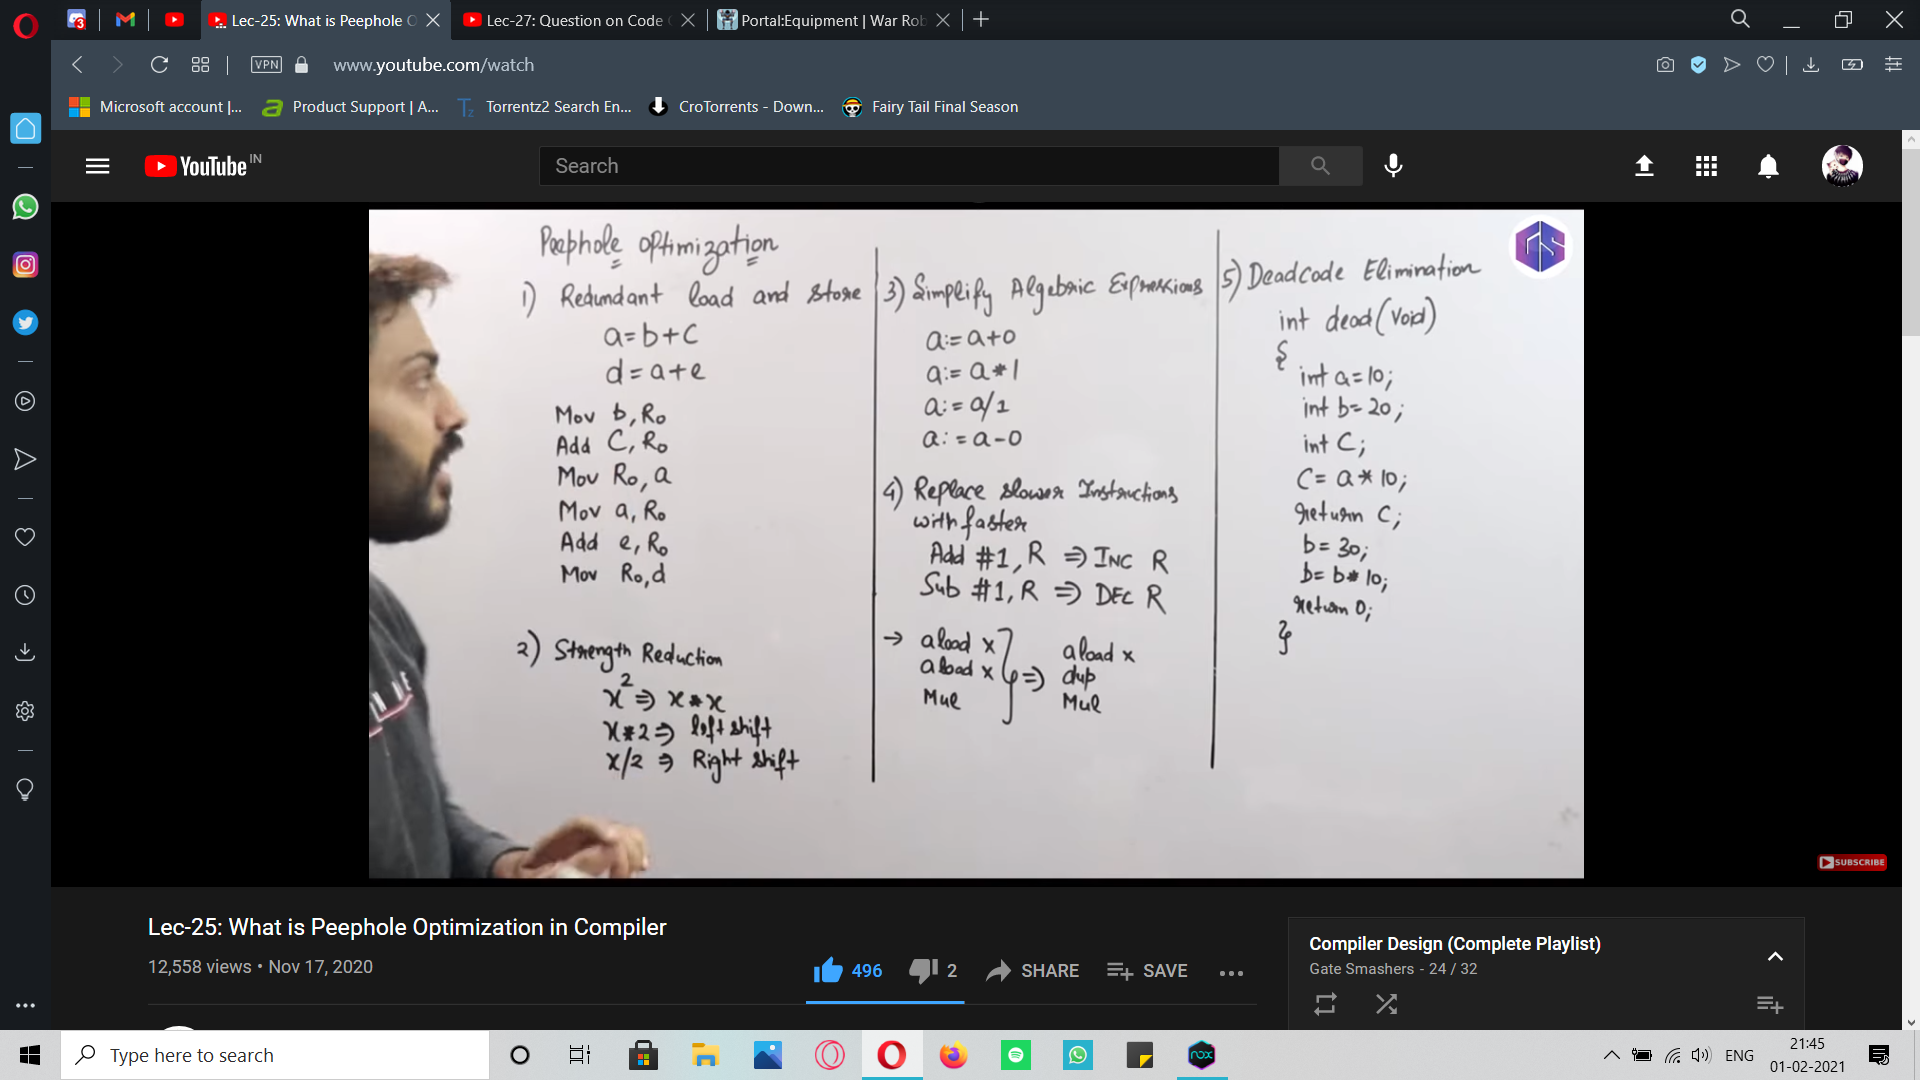 3
Lec-25: What is Peephole O
Lec-27: Question on Code
Portal:Equipment | War Rob
VPN
www.youtube.com/watch
Microsoft account |...
Product Support | A...
Tz
Torrentz2 Search En...
CroTorrents - Down...
Fairy Tail Final Season
YouTube IN
Search
Peephole optimization
1) Redundant load and store
a=b+c
d=a+e
Mov b, R₀
Add C, R₀
Mov R₀, a
Mov a, R₀
Add e, R₀
Mov R₀, d
2) Strength Reduction
x² ⇒ x*x
x*2 ⇒ left shift
x/2 ⇒ Right shift
3) Simplify Algebric Expressions
a:= a+0
a:= a*1
a:= a/1
a:= a-0
4) Replace slower Instructions
with faster
Add #1, R ⇒ INC R
Sub #1, R ⇒ DEC R
→ aload x
aload x
Mul
⇒
aload x
dup
Mul
5) Deadcode Elimination
int dead(void)
{
int a=10;
int b=20;
int C;
C= a*10;
return C;
b=30;
b=b*10;
return 0;
}
SUBSCRIBE
Lec-25: What is Peephole Optimization in Compiler
12,558 views • Nov 17, 2020
496
2
SHARE
SAVE
Compiler Design (Complete Playlist)
Gate Smashers - 24 / 32
Type here to search
nox
ENG
21:45
01-02-2021